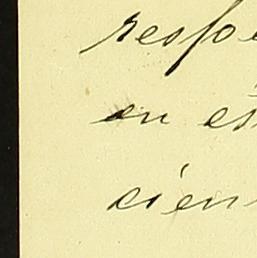 respo
en es
cien